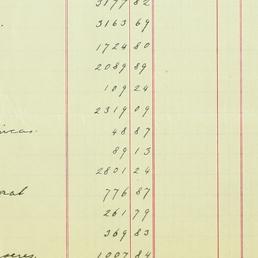 3177 82
3163 69
1724 80
2089 89
109 24
2319 09
48 87
89 13
2801 24
776 87
261 79
369 83
1007 84